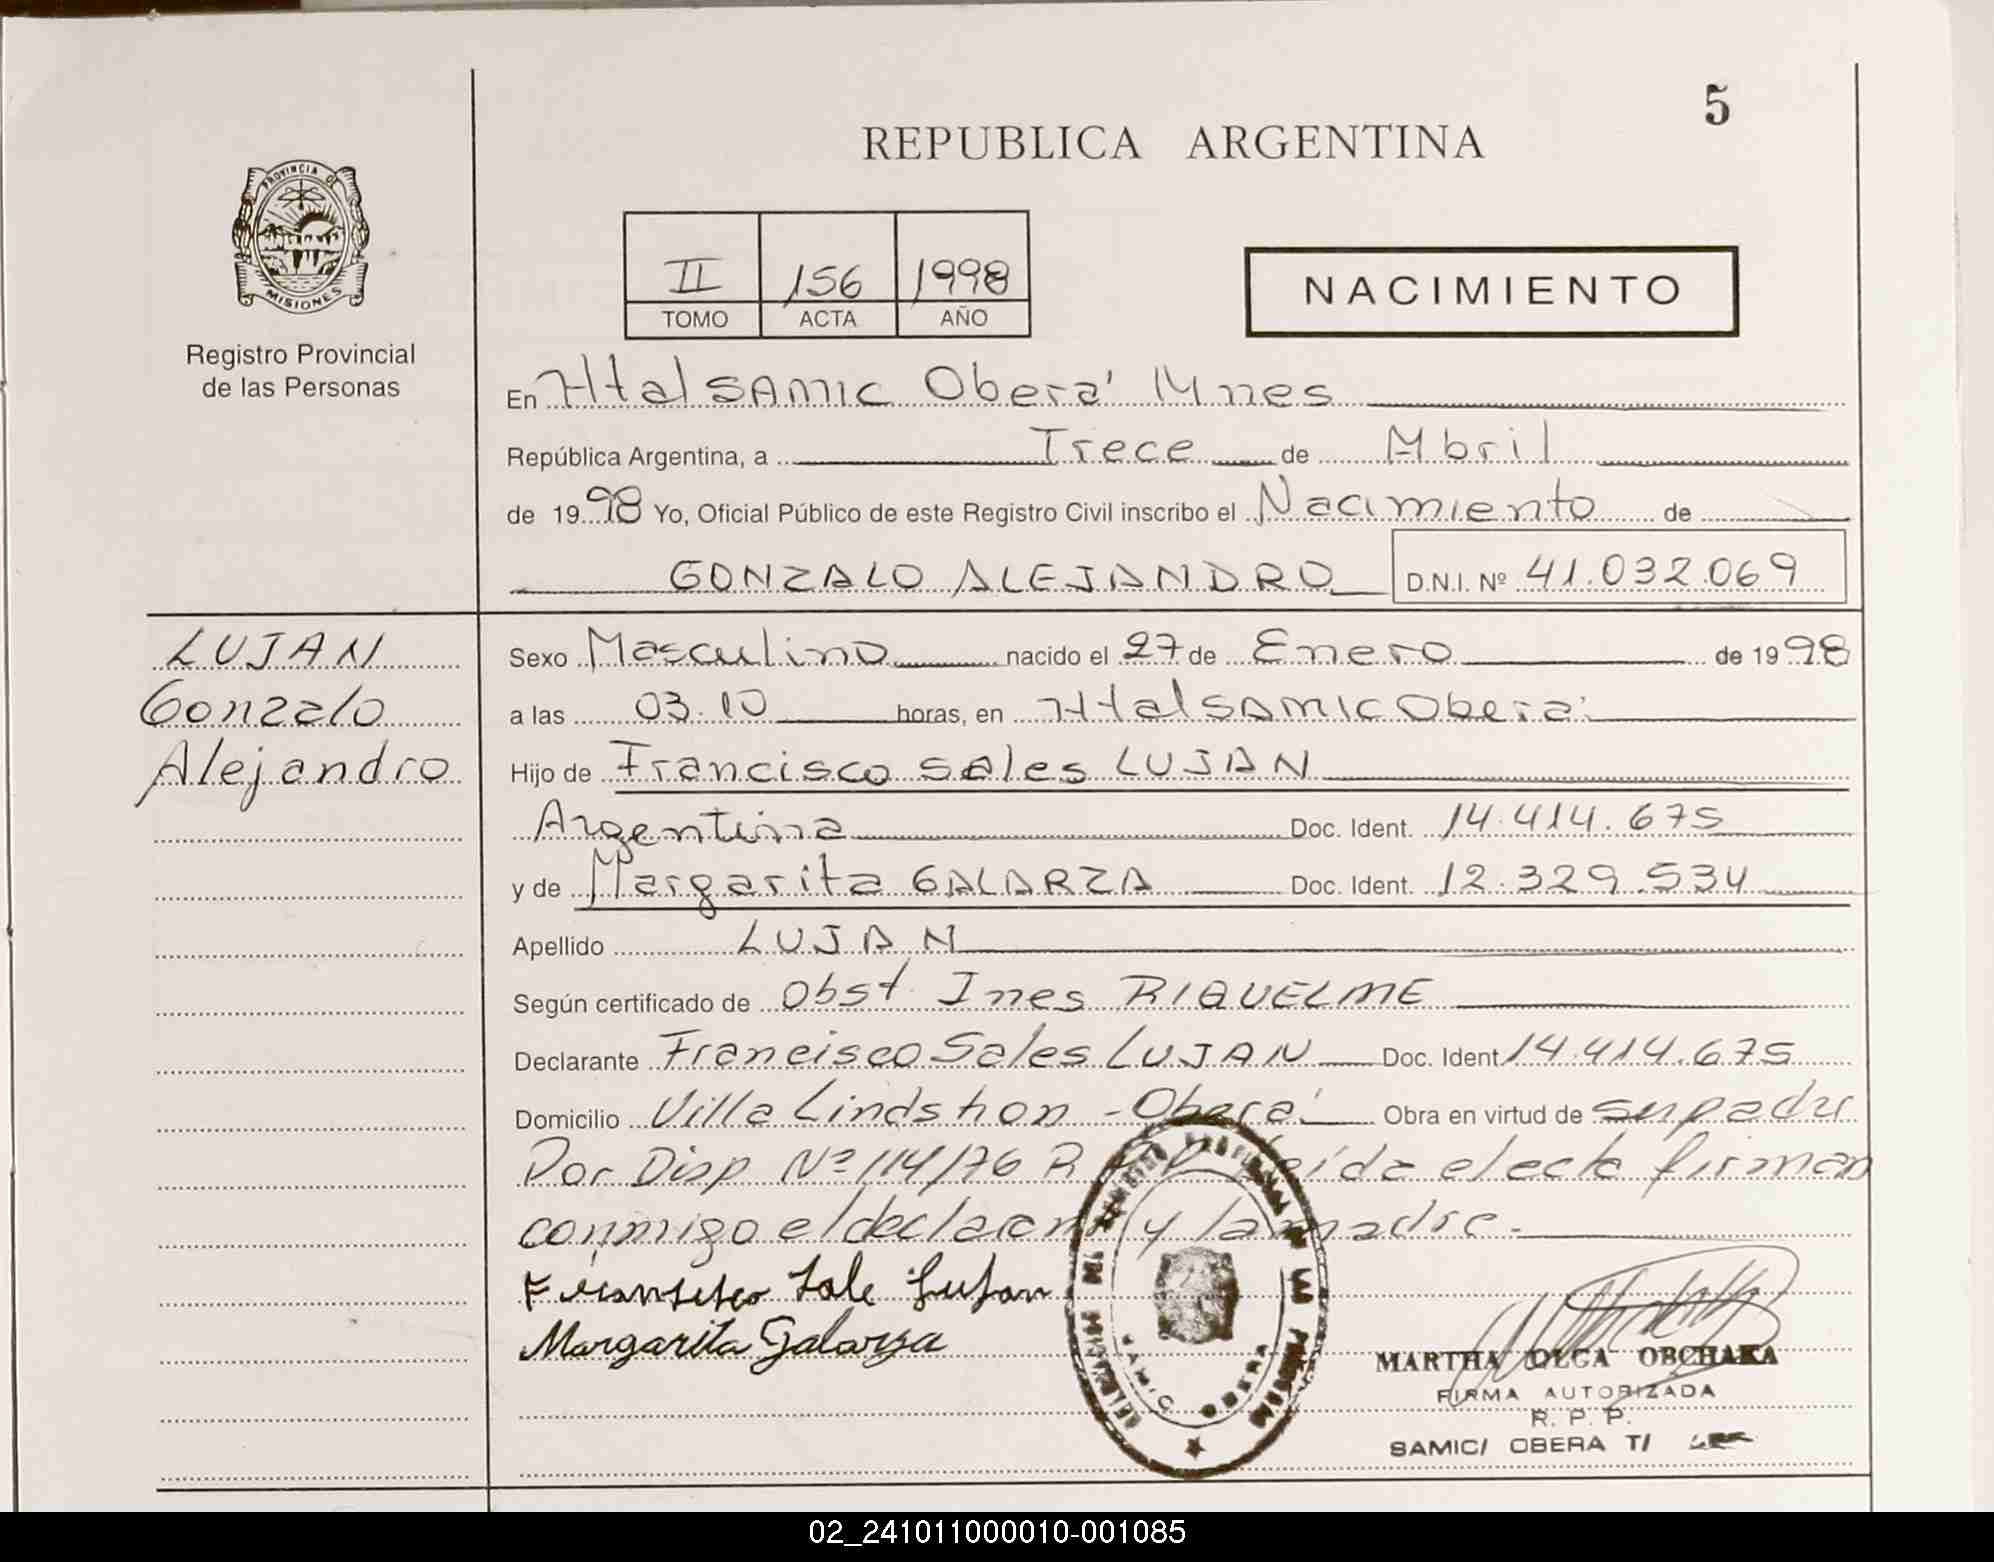 5
REPUBLICA ARGENTINA
PROVINCIA DE
MISIONES
Registro Provincial
de las Personas
II 156 1998
TOMO ACTA AÑO
NACIMIENTO
En Htal SAMIC Oberá Mnes
República Argentina, a Trece de Abril
de 1998 Yo, Oficial Público de este Registro Civil inscribo el Nacimiento de
GONZALO ALEJANDRO D.N.I. Nº 41.032.069
LUJAN
Gonzalo
Alejandro
Sexo Masculino nacido el 27 de Enero de 1998
a las 03.10 horas, en Htal SAMIC Oberá
Hijo de Francisco Sales LUJAN
Argentina Doc. Ident. 14.414.675
y de Margarita GALARZA Doc. Ident. 12.329.534
Apellido LUJAN
Según certificado de Obst. Ines RIQUELME
Declarante Francisco Sales LUJAN Doc. Ident 14.414.675
Domicilio Villa Lindshon - Oberá Obra en virtud de su padre
Por Disp Nº 114/76 R leída el acta firman
conmigo el declarante y la madre.
Margarita Galarza
MARTHA OLGA OBCHAKA
FIRMA AUTORIZADA
R. P. P.
SAMIC/ OBERA T/
02_241011000010-001085